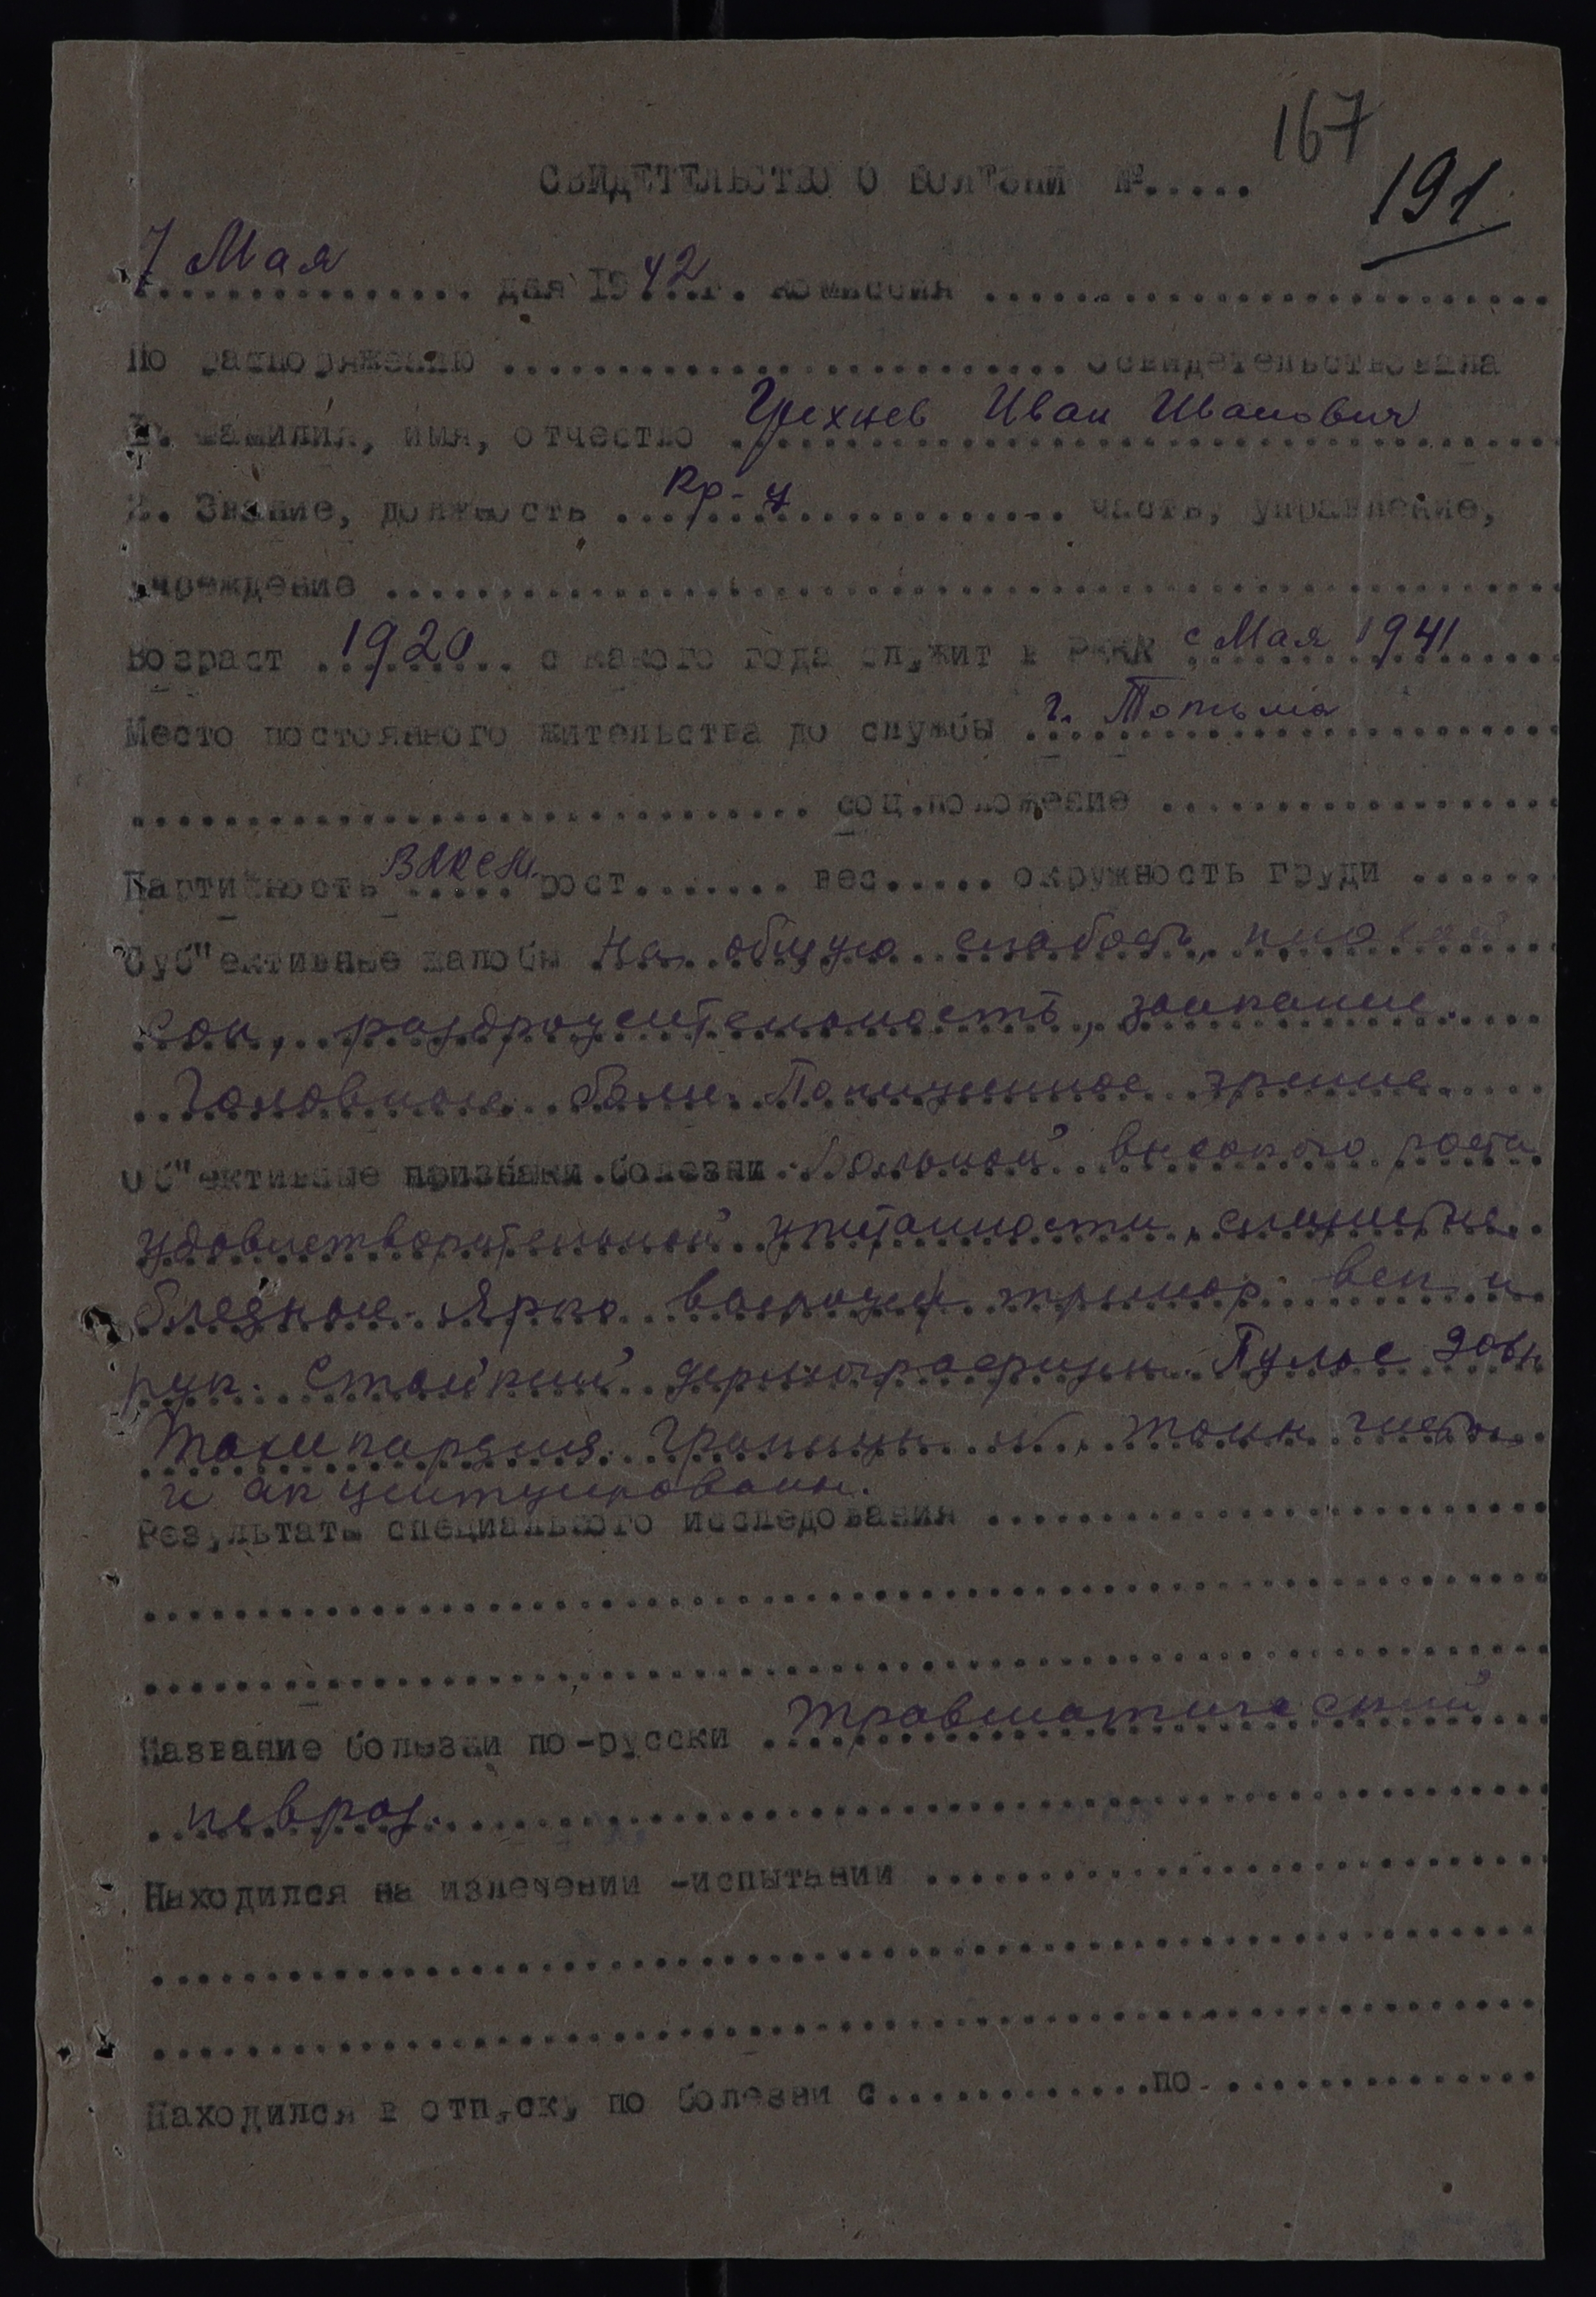 167
191
СВИДЕТЕЛЬСТВО О БОЛЕЗНИ №.....
7 Мая дня 1942 г. комиссия
По распоряжению освидетельствовала
1. Фамилия, имя, отчество Грехнев Иван Иванович
2. Звание, должность Кр-ц часть, управление,
учреждение
Возраст 1920 с какого года служит в РККА с Мая 1941
Место постоянного жительства до службы г. Тотьма
соц.положение
Партийность ВЛКСМ рост....... вес..... окружность груди ......
Суб"ективные жалобы На общую слабость, плохой
сон, раздражительность, заикание.
Головные боли. Пониженное зрение.
Об"ективные признаки болезни Больной высокого роста
удовлетворительной упитанности, слизистые
бледные. Ярко выражен тремор век и
рук. Стойкий дермографизм. Пульс 90
Тахикардия. Границы N, тоны чисты
и акцентуированы.
Результаты специального исследования
Название болезни по-русски травматический
невроз.
Находился на излечении -испытании
Находился в отпуску по болезни с.............по